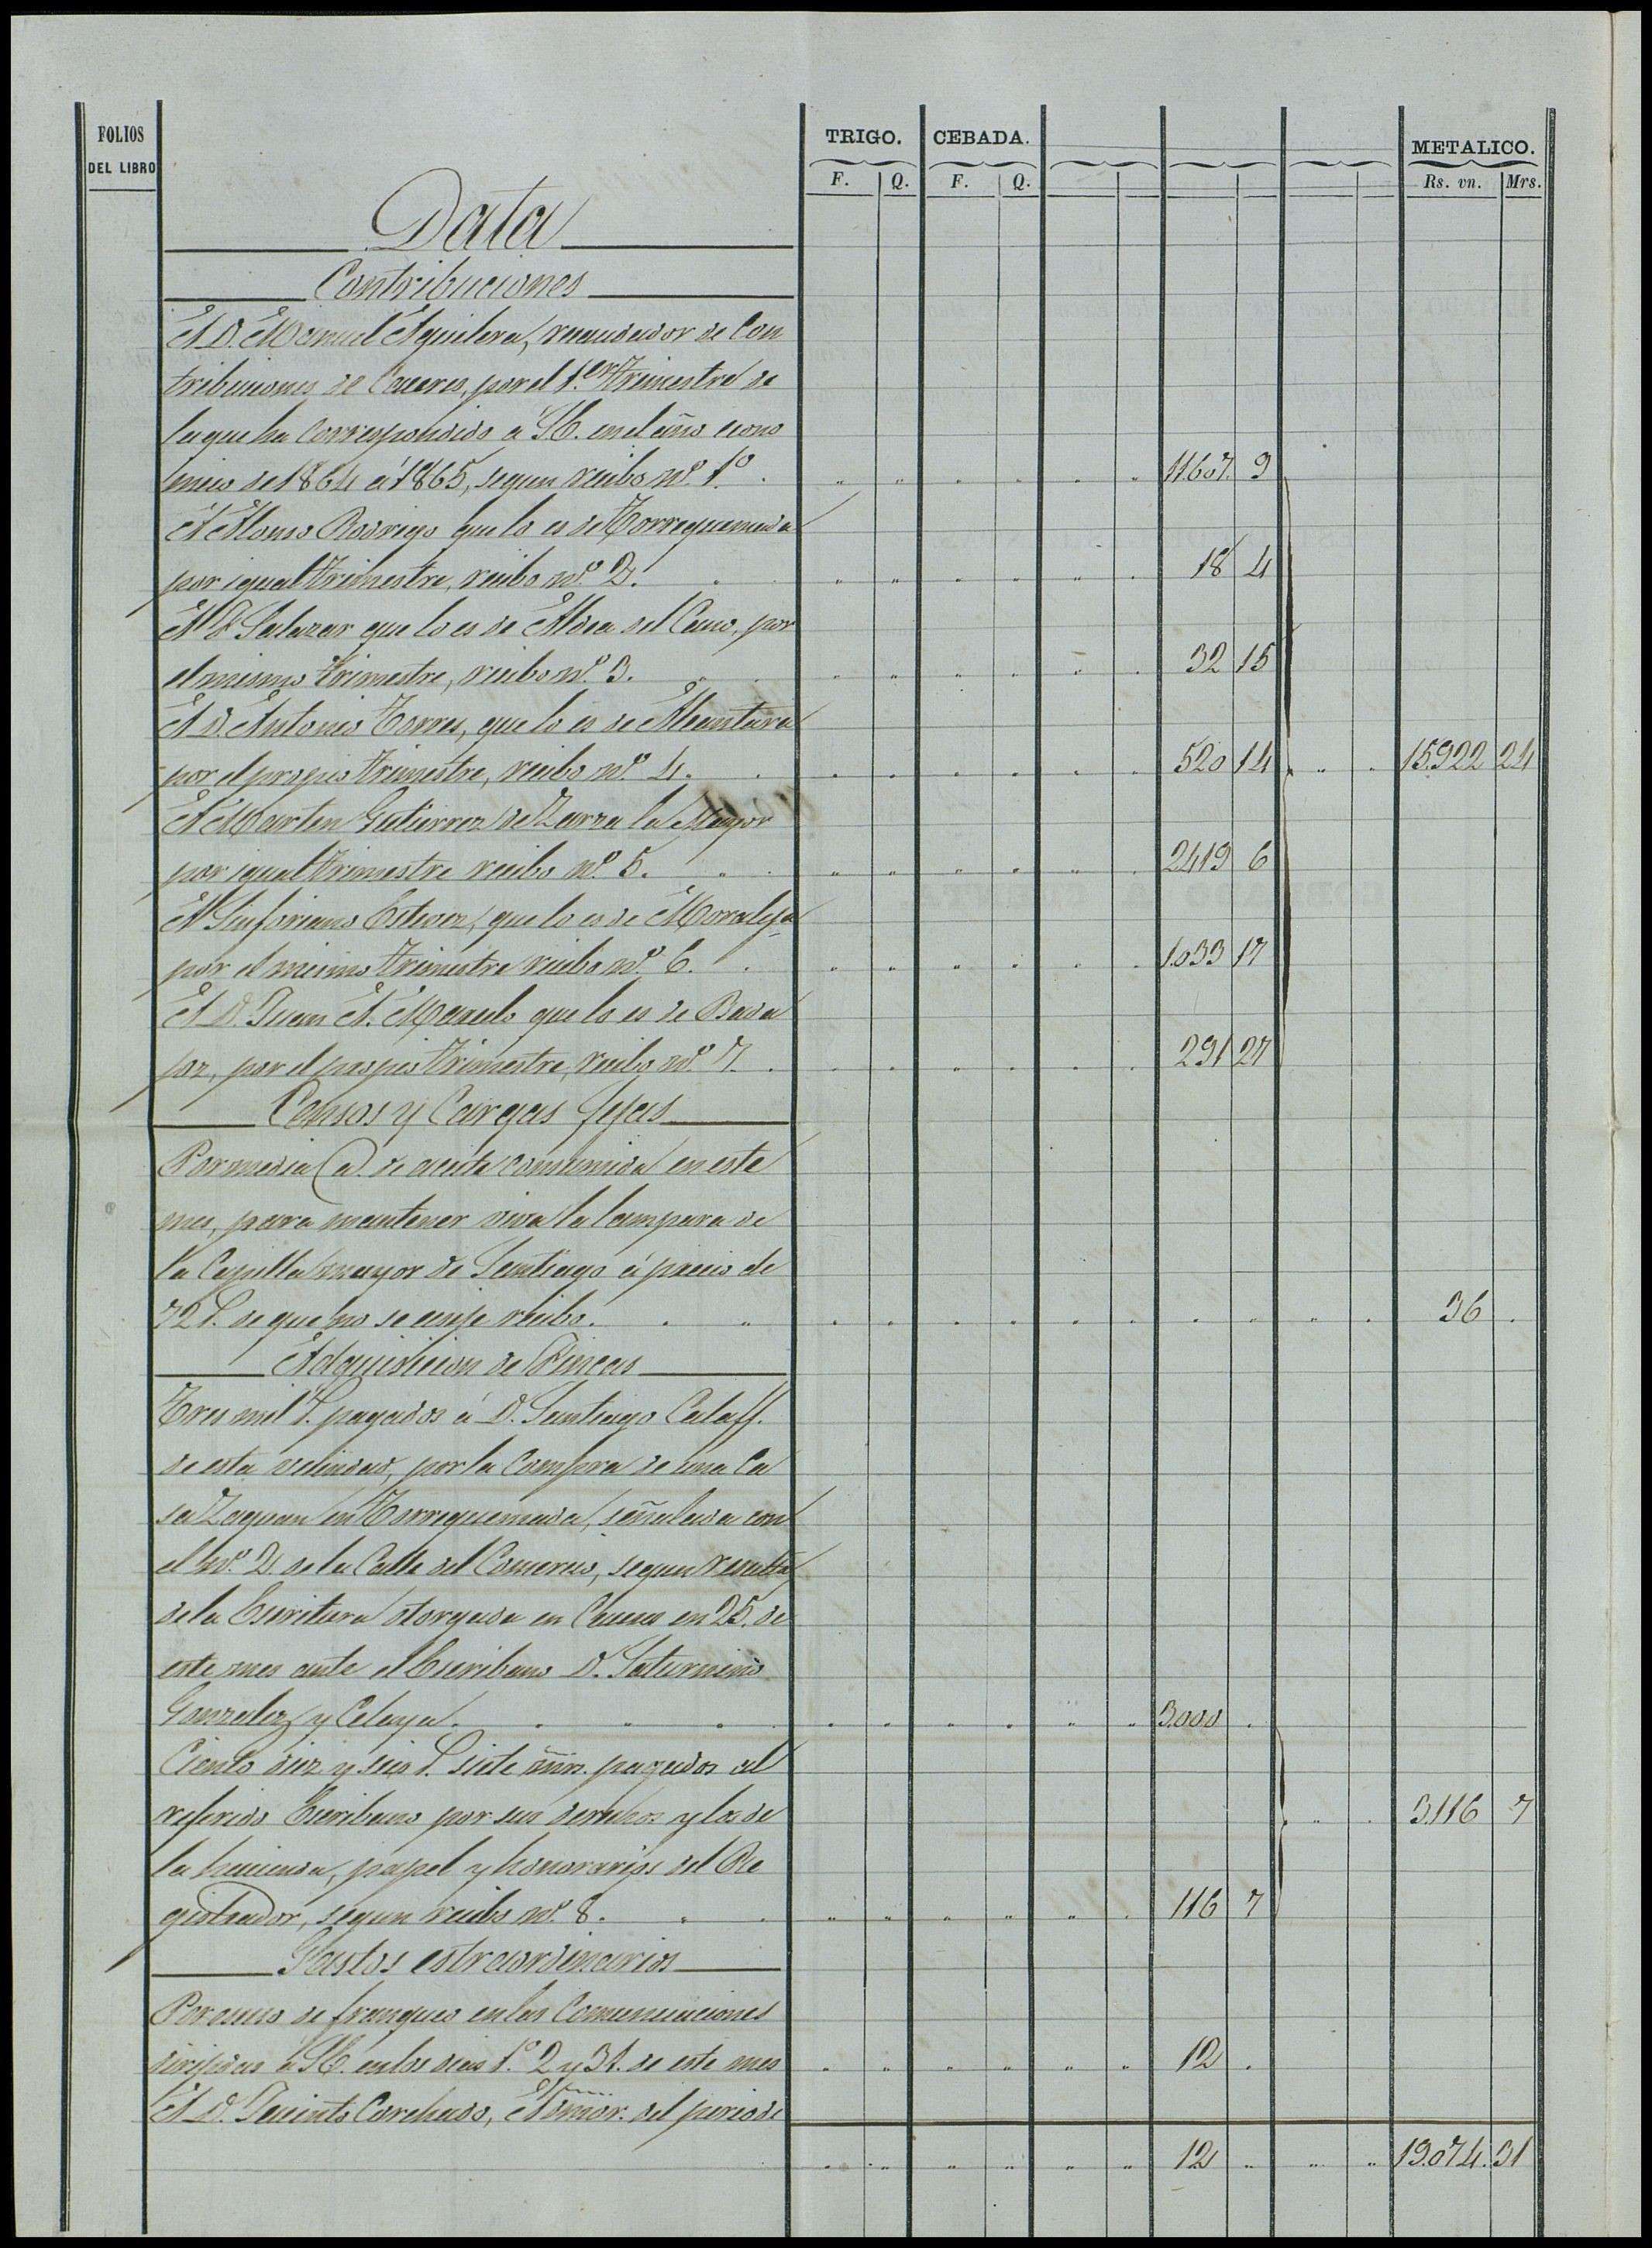 FOLIOS DEL LIBRO
TRIGO. CEBADA. METALICO.
F. Q. F. Q. Rs. vn. Mrs.
Data
Contribuciones
A D. Manuel Aguilera, recaudador de Con
tribuciones de Caceres, por el 1.er trimestre de
la que ha correspondido á S.E. en el año econo
mico de 1864 á 1865, segun recibo nº. 1º. 11607. 9
A Alonso Rodrigo que lo es de Torrequemada
por igual trimestre, recibo nº. 2. 18 4
A F. Salazar que lo es de Aldea del Cano, por
el mismo trimestre, recibo nº. 3. 32 15
A D. Antonio Torres, que lo es de Alcantara
por el propio trimestre, recibo nº. 4. 520 14 15.922 24
A Martin Gutierrez de Zarza la Mayor
por igual trimestre recibo nº. 5. 2419 6
A Sinforiano Estevez, que lo es de Moraleja
por el mismo trimestre recibo nº. 6. 1.033 17
A D. Juan A. Marcelo que lo es de Bada
joz, por el propio trimestre, recibo nº. 7. 291 27
Censos y Cargas fijas
Por media @. de aceite consumida en este
mes, para mantener viva la lampara de
la Capilla mayor de Santiago á precio de
72 r. de que no se exije recibo. 36
Adquisicion de Fincas
Tres mil r. pagados á D. Santiago Calaff.
de esta vecindad, por la Compra de una Ca
sa Zaguan en Torrequemada, señalada con
el nº. 2. de la Calle del Comercio, segun resulta
de la Escritura otorgada en Caceres en 25. de
este mes ante el Escribano D. Saturnino
Gonzalez y Celaya. 3.000
Ciento diez y seis r. siete mrs. pagados al
referido Escribano por sus derechos y los de
la hacienda, papel y honorarios del Re 3.116 7
gistrador, segun recibo nº. 8. 116 7
Gastos estraordinarios
Por esceso de franqueo en las Comunicaciones
dirijidas á S.E. en los dias 1º. 2 y 31. de este mes 12
A D. Jacinto Carchudo, Admor. del period
12 19.074. 31